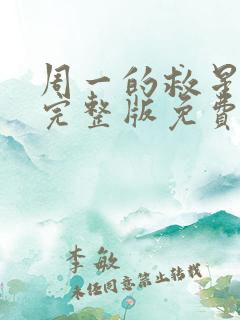 周一的救星
完整版免费
李敏
未经同意禁止转载